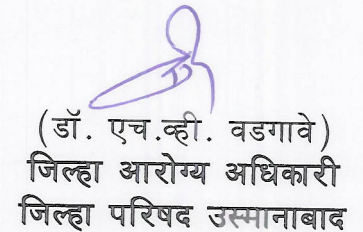 (डॉ. एच.व्ही. वडगावे)
जिल्हा आरोग्य अधिकारी
जिल्हा परिषद उस्मानाबाद